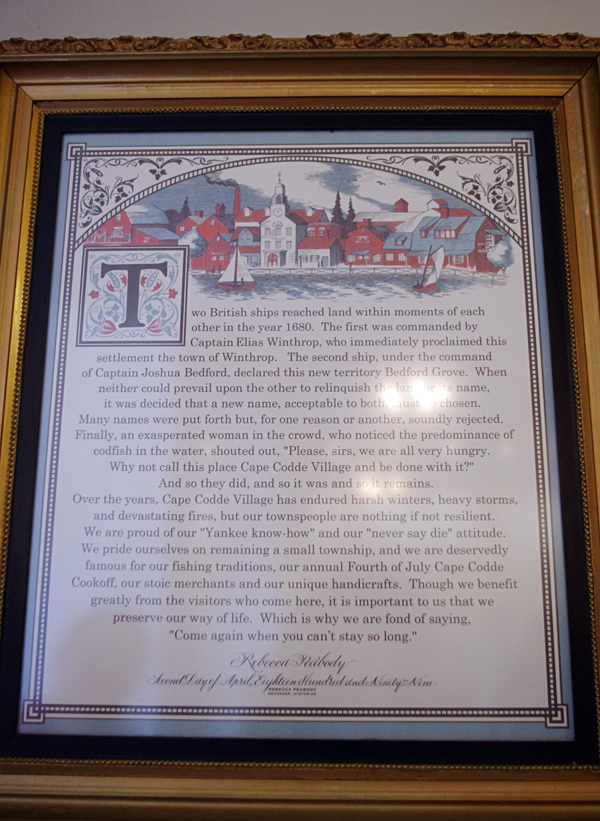 Two British ships reached land within moments of each
other in the year 1680. The first was commanded by
Captain Elias Winthrop, who immediately proclaimed this
settlement the town of Winthrop. The second ship, under the command
of Captain Joshua Bedford, declared this new territory Bedford Grove. When
neither could prevail upon the other to relinquish the land or its name,
it was decided that a new name, acceptable to both, must be chosen.
Many names were put forth but, for one reason or another, soundly rejected.
Finally, an exasperated woman in the crowd, who noticed the predominance of
codfish in the water, shouted out, "Please, sirs, we are all very hungry.
Why not call this place Cape Codde Village and be done with it?"
And so they did, and so it was and so it remains.
Over the years, Cape Codde Village has endured harsh winters, heavy storms,
and devastating fires, but our townspeople are nothing if not resilient.
We are proud of our "Yankee know-how" and our "never say die" attitude.
We pride ourselves on remaining a small township, and we are deservedly
famous for our fishing traditions, our annual Fourth of July Cape Codde
Cookoff, our stoic merchants and our unique handicrafts. Though we benefit
greatly from the visitors who come here, it is important to us that we
preserve our way of life. Which is why we are fond of saying,
"Come again when you can't stay so long."
Rebecca Peabody
Second Day of April, Eighteen Hundred and Ninety-Nine
REBECCA PEABODY
RECORDER · HISTORIAN